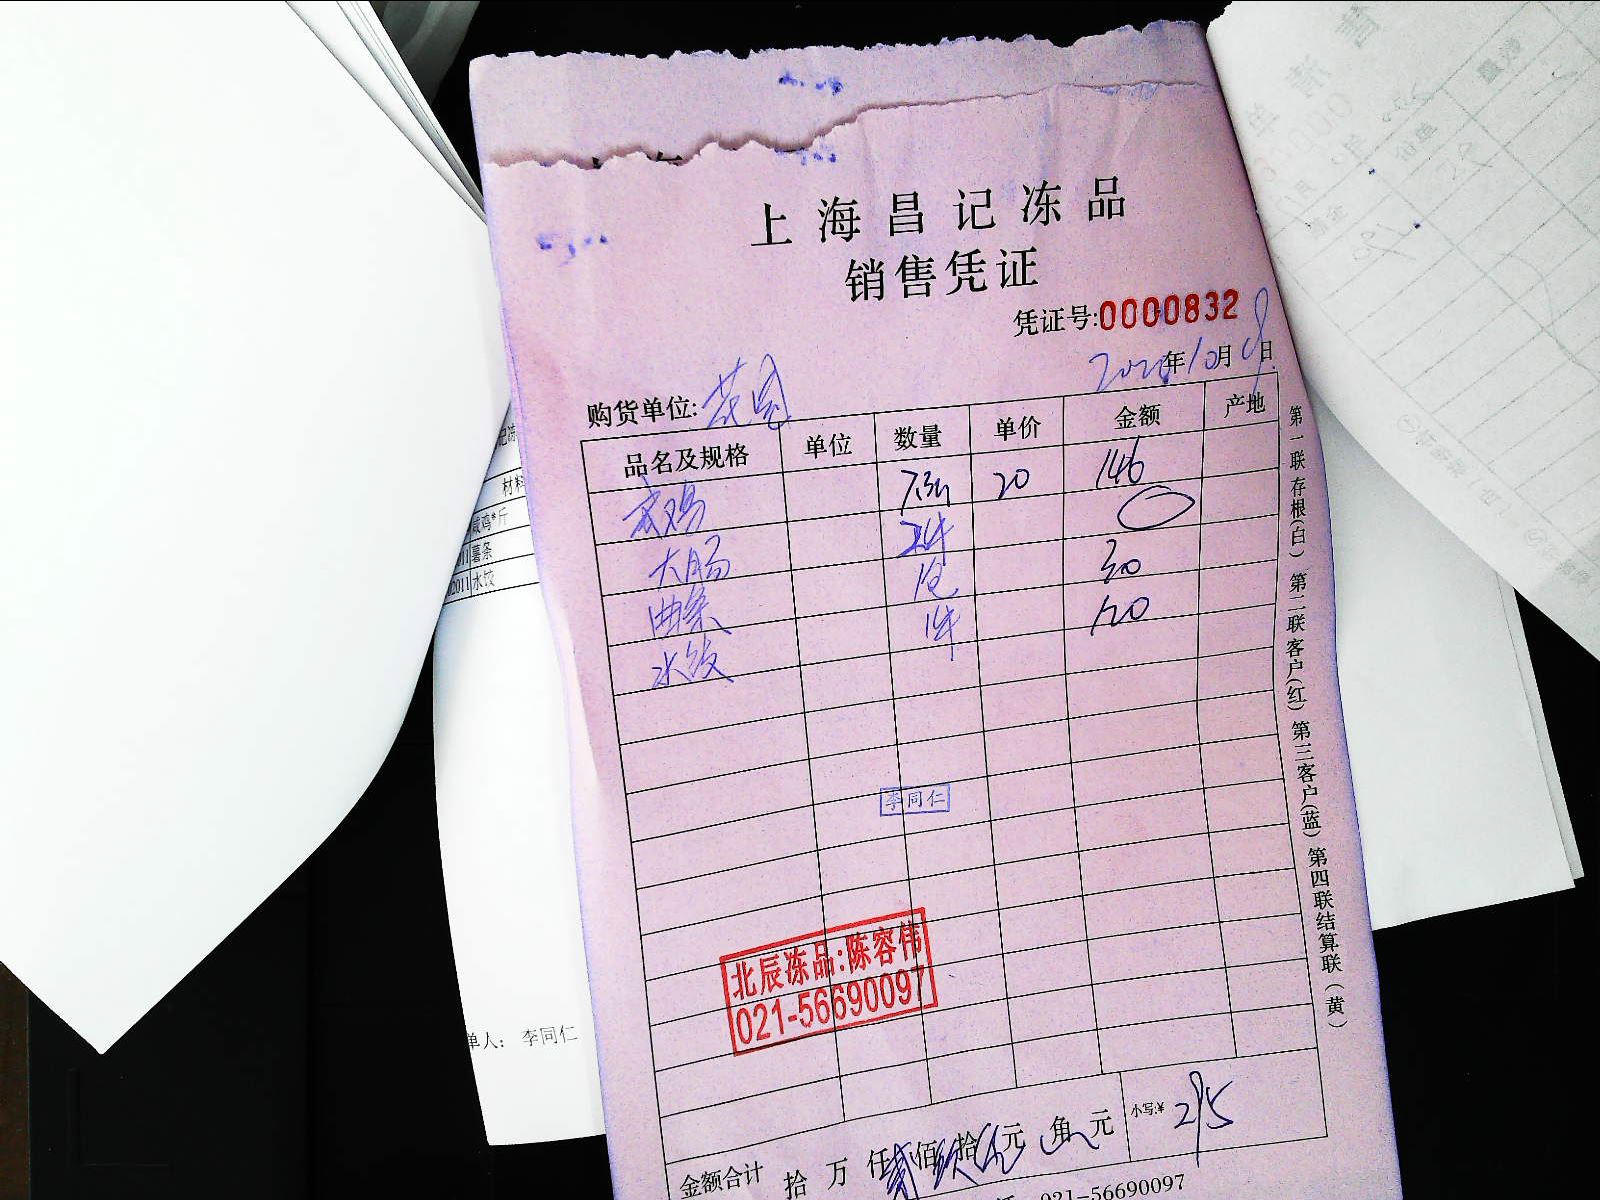 上海昌记冻品
销售凭证
凭证号:0000832
年10月 日
购货单位:花园
品名及规格 单位 数量 单价 金额 产地
咸鸡 20 146
大肠 2件
曲条 1包 30
水饺 1件 120
李同仁
北辰冻品:陈容伟
021-56690097
金额合计 拾 万 仟 佰 拾 元 角 元 小写:¥
021-56690097
第一联存根(白) 第二联客户(红) 第三客户(蓝) 第四联结算联(黄)
材料
咸鸡*斤
薯条
2011 水饺
单人: 李同仁